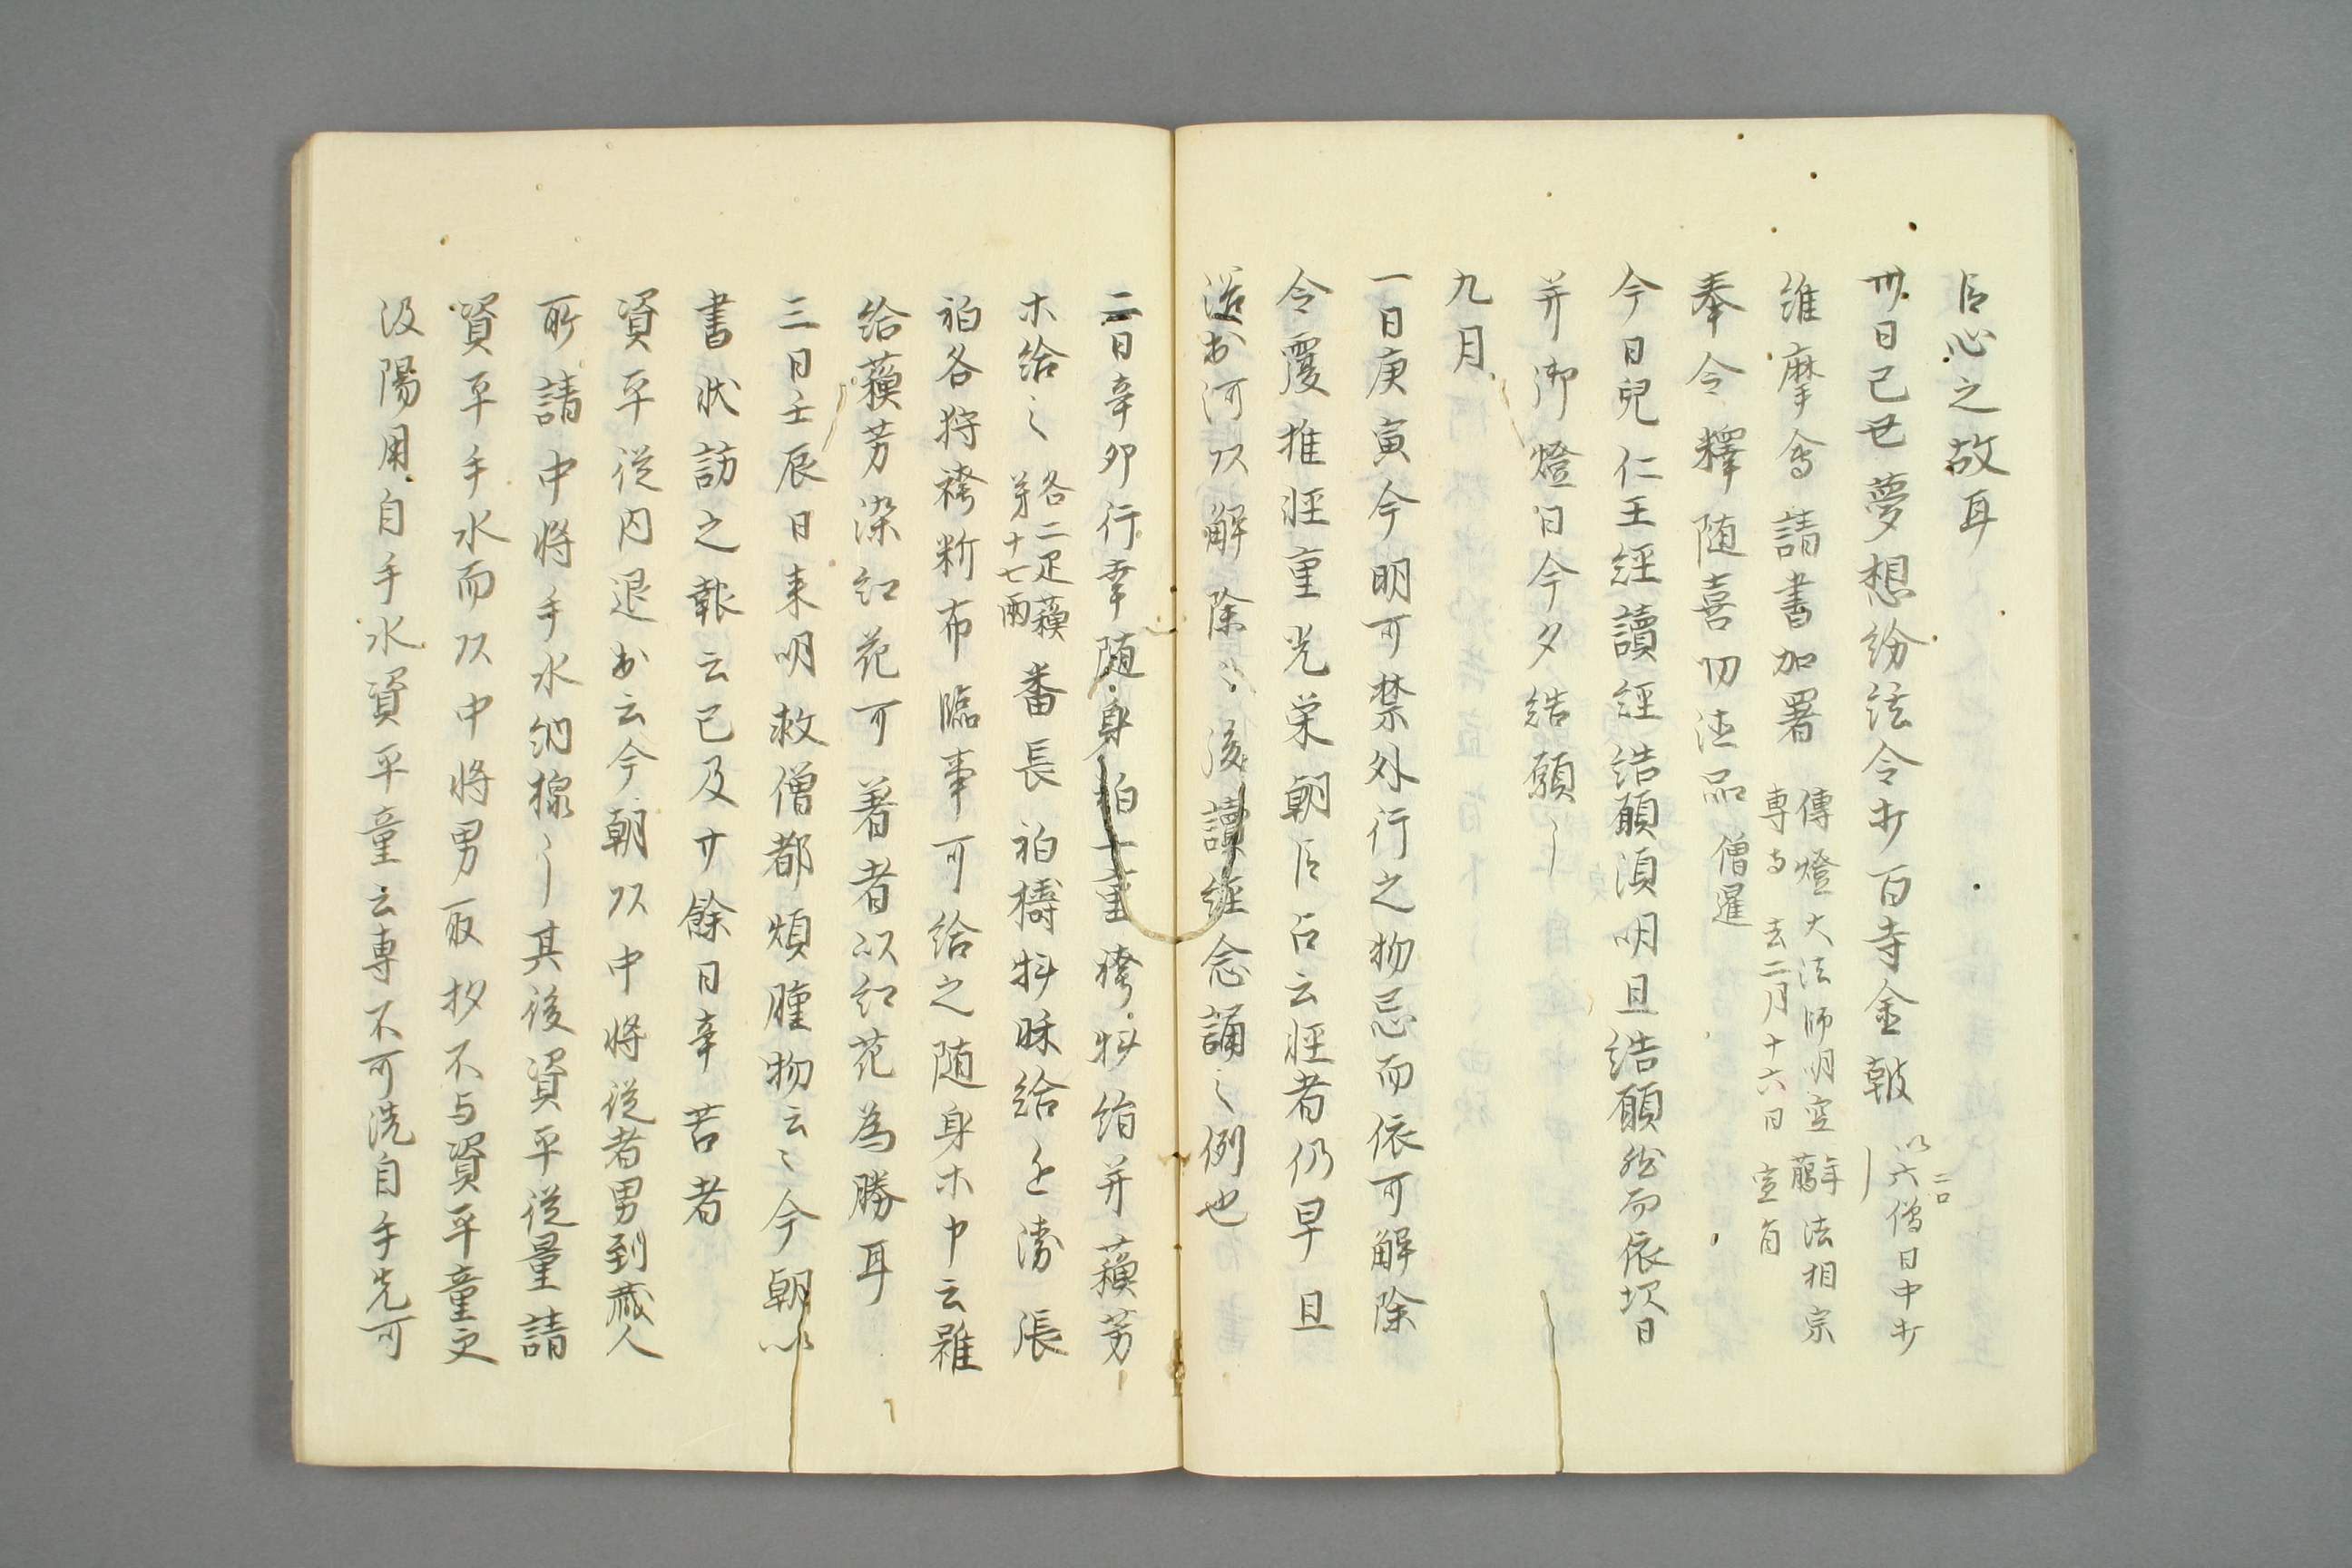 臣心之故耳
卅日己丑夢想紛紜令打百寺金皷 以六僧二口日中打
維摩會請書加署 傳燈大法師明空 﨟年 法相宗 専寺 去二月十六日 宣旨
奉令釋随喜功徳品 僧暹
今日兒仁王經讀經結願須明旦結願然而依坎日
并御燈日今夕結願了
九月
一日庚寅今明可禁外行之物忌而依可解除
令覆推恠重光栄朝臣占云恠者仍早旦
出河以解除々後讀經念誦之例也
二日辛卯行幸随身袙一重袴料絹并蘓芳
木給之 各二疋蘓芳十七兩 番長袙擣料昧給之 張
袙各狩袴新布臨事可給之随身木申云雖
給蘓芳染紅花可著者以紅花為勝耳
三日壬辰日来明救僧都煩腫物云々今朝以
書状訪之報云已及廾餘日辛苦者
資平従内退出云今朝以中将従者男到蔵人
所請中将手水納樣々了其後資平従量請
資平手水而以中将男取抄不与資平童更
汲陽用自手水資平童云専不可洗自手先可